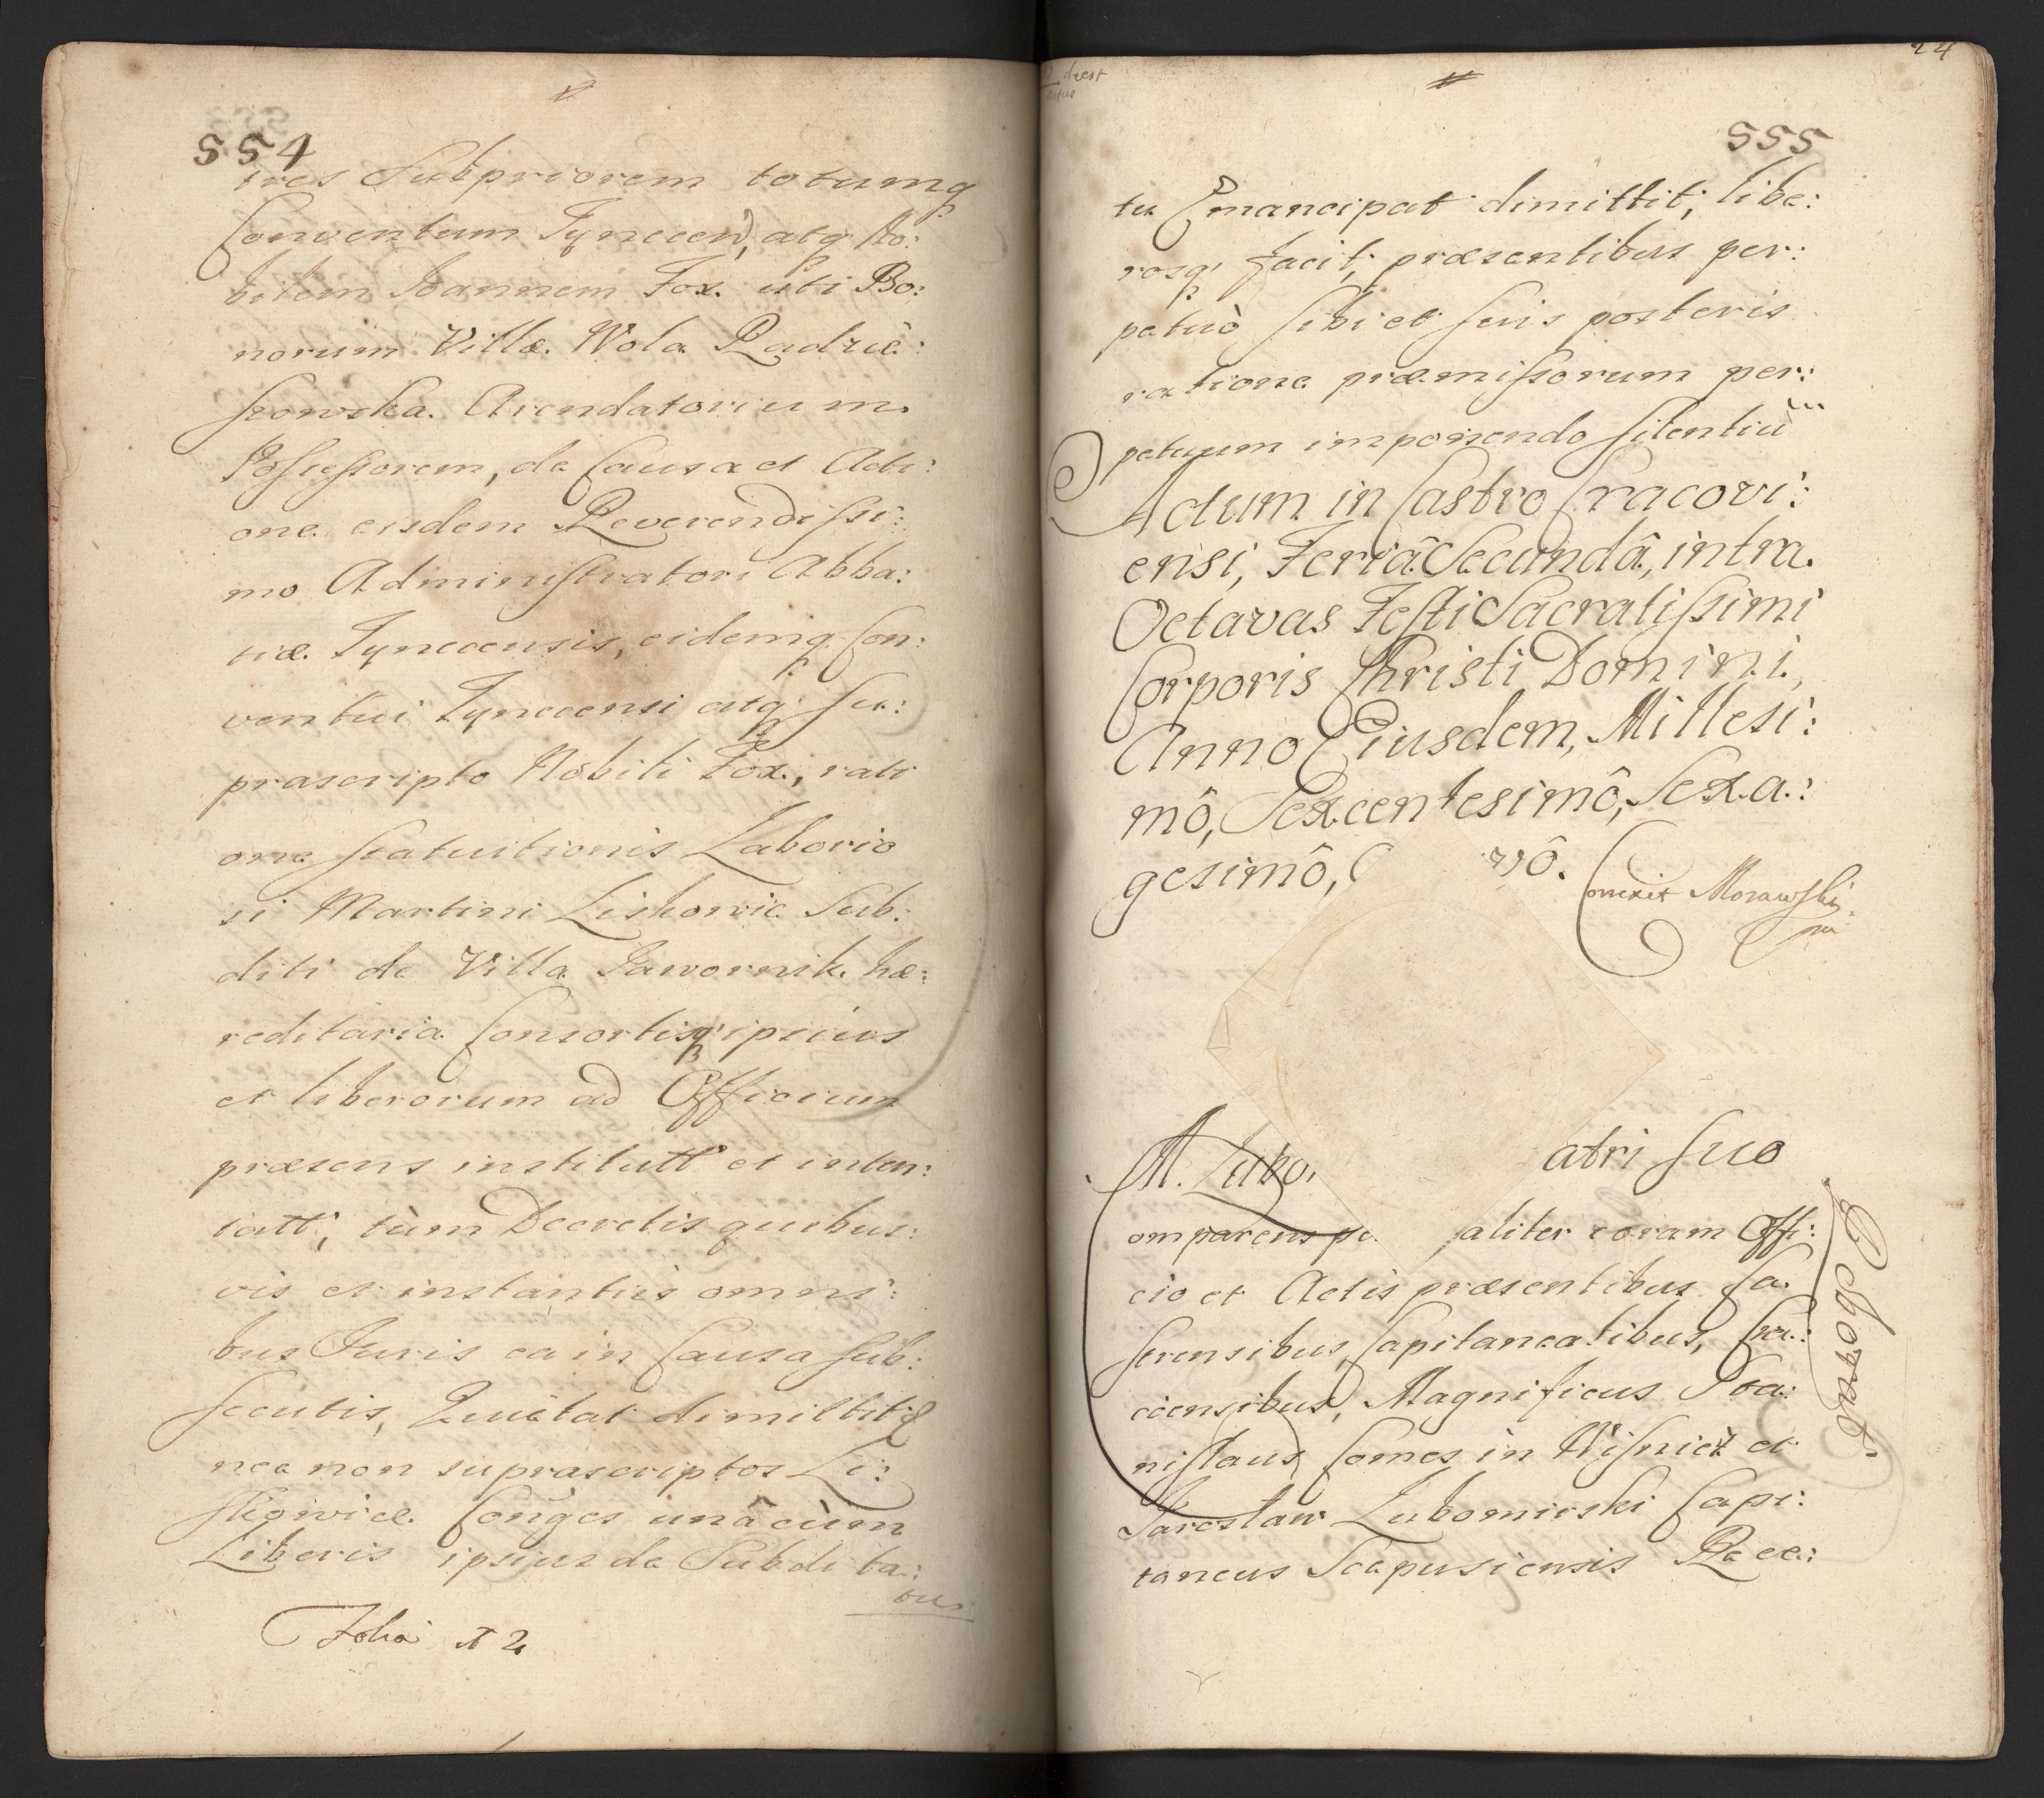 554
tres Subpriorem totumq
Conventum Tynecen, atq No:
bilem Joannem Fox. uti Bo:
norum Villæ Wola Radzie:
szowska Arendatorium
Possessorem, de Causa et Acti:
one eisdem Reverendissi:
mo Administratori Abba:
tiæ Tynecensis, eidemq Con:
ventui Tynecensi atq su:
prascripto Nobili Fox, rati
one statuitionis Laborio
si Martini Liskowic Sub:
diti de Villa Jawornik hæ:
reditaria Consortisq ipsius
et liberorum ad Officium
præsens institutt et inten:
tatt, tùm Decretis quibus:
vis et instantiis omni:
bus Juris ea in Causa sub:
secutis, Quietat dimittitq
nec non suprascriptos Li:
skowice Conjuges unâ cùm
Liberis ipsius de Subdita:
tu
Folia
24
555
tu Emancipat dimittit, libe:
rosq facit, præsentibus per:
petuò sibi et suis posteris
ratione præmissorum per:
petuum imponendo silentiũ
Actum in Castro Cracovi:
ensi, Feriâ Secundâ, intra
Octavas Festi Sacratissimi
Corporis Christi Domini,
Anno Eiusdem, Millesi:
mô, Sexcentesimô, Sexa:
gesimô, vô.
Correxit Morawski
mp
M. Lubo. atri suo
omparens pe aliter coram Offi:
cio et Actis præsentibus Ca
strensibus, Capitaneatibus, Cra:
coensibus, Magnificus Sta:
nislaus Comes in Wisnicz et
Jaroslaw Lubomirski Capi:
taneus Scepusiensis Rece: